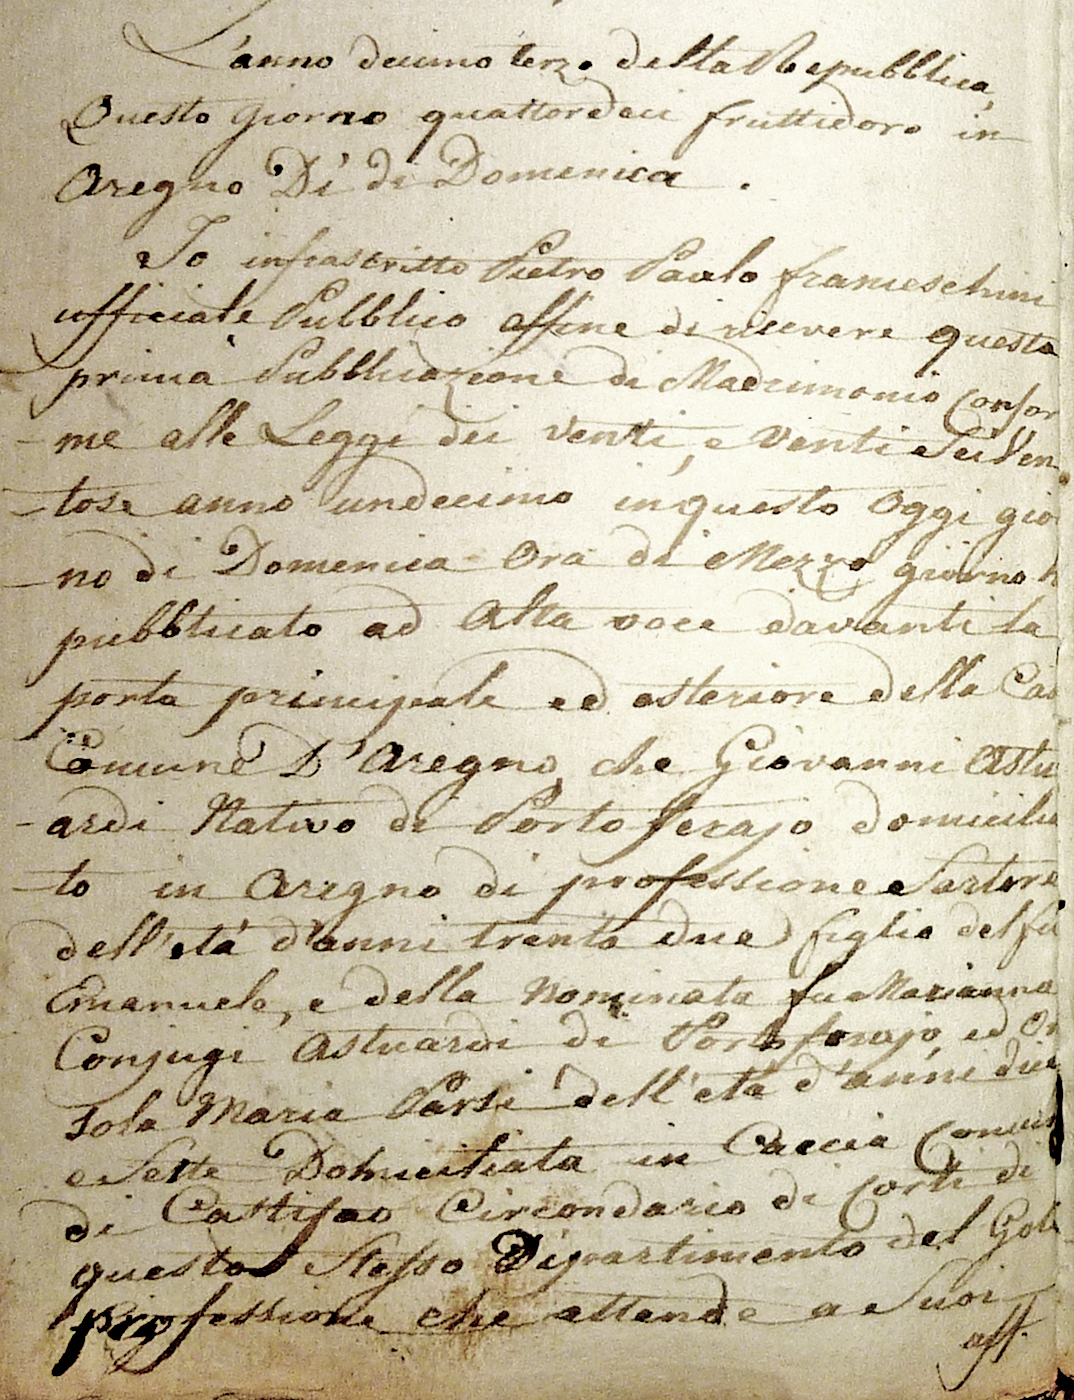 L'anno decimo terzo della Repubblica,
Questo giorno quattordeci fruttidoro in
Aregno Dì di Domenica .
Io infrascritto Pietro Paolo franceschini
ufficiale Pubblico affine di ricevere questa
prima Pubblicazione di Madrimonio confor
me alle Leggi dei venti, e venti sei Ven
tose anno undecimo in questo oggi gior
no di Domenica ora di Mezzo giorno h
pubblicato ad alta voce davanti la
porta principale ed esteriore della Cas
Comune D'Aregno, che Giovanni Astu
ardi Nativo di Porto ferajo domicilia
to in Aregno di professione Sartore
dell'età d'anni trenta due figlio del fù
Emanuele, e della Nominata fu Marianna
Conjugi Astuardi di Porto ferajo, ed Or
sola Maria Parsi dell'età d'anni diec
e Sette Domiciliata in Caccia Comun
di Castifao Circondario di Corti di
questo Stesso Dipartimento del Golo
professione che attende a Suoi
aff.